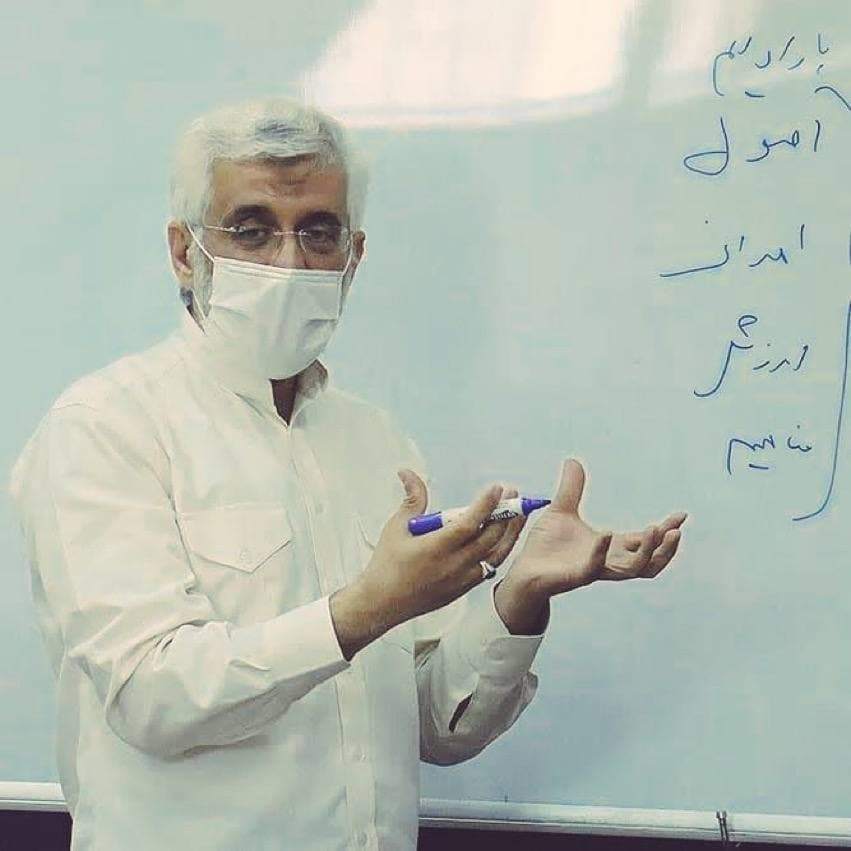 پارادایم
اصول
اهداف
ارزش
مفاهیم